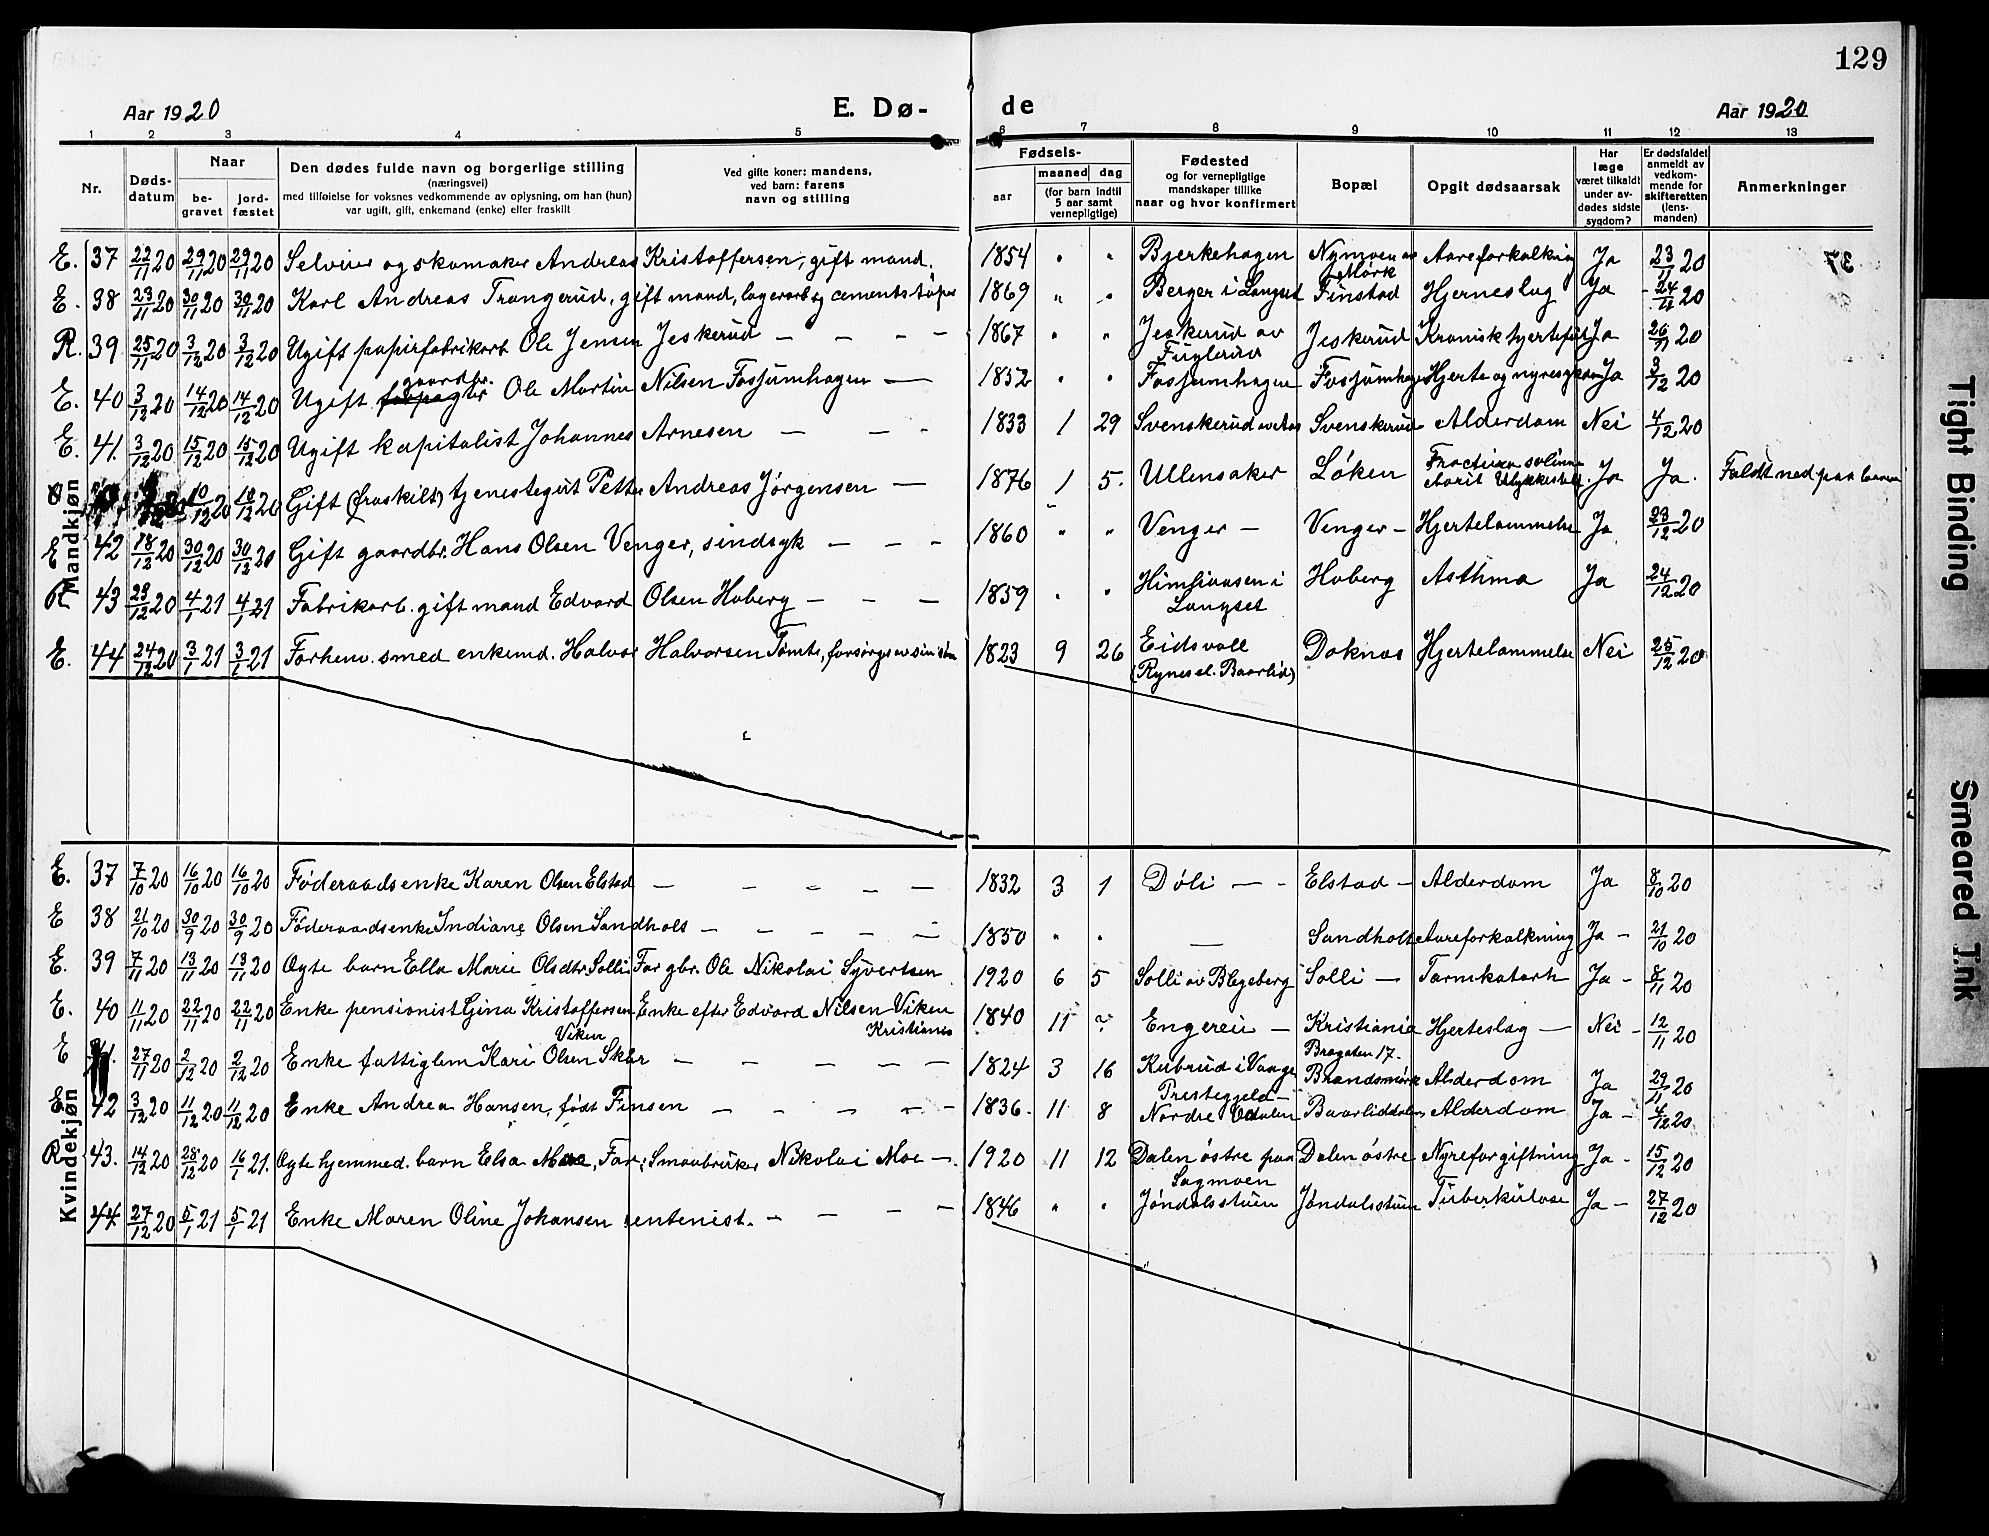 129
Aar 1920 E. Dø- de Aar 1920
1 2 3 4 5 6 7 8 9 10 11 12 13
Nr.
Døds-
datum
Naar
be-
gravet
jord-
fæstet
Den dødes fulde navn og borgerlige stilling
(næringsvei)
med tilføielse for voksnes vedkommende av oplysning, om han (hun)
var ugift, gift, enkemand (enke) eller fraskilt
Ved gifte koner: mandens,
ved barn: farens
navn og stilling
Fødsels-
aar
maaned dag
(for barn indtil
5 aar samt
vernepligtige)
Fødested
og for vernepligtige
mandskaper tillike
naar og hvor konfirmert
Bopæl
Opgit dødsaarsak
Har
læge
været tilkaldt
under av-
dødes sidste
sygdom?
Er dødsfaldet
anmeldt av
vedkom-
mende for
skifteretten
(lens-
manden)
Anmerkninger
Mandkjøn
E. 37 22/11 20 29/11 20 29/11 20 Selveier og skomaker Andreas Kristoffersen, gift mand. 1854 " " Bjerkehagen Nymoen av Mørk Aareforkalkning Ja 23/11 20
E. 38 23/11 20 30/11 20 30/11 20 Karl Andreas Trangerud, gift mand, lagerarb. og cementstøper 1869 " " Berger i Langset Finstad Hjerneslag Ja 24/11 20
R. 39 25/11 20 3/12 20 3/12 20 Ugift papirfabrikarb. Ole Jensen Jeskerud — — — — 1867 " " Jeskerud av Fuglerud Jeskerud Kronisk hjertefeil Ja 26/11 20
E. 40 3/12 20 14/12 20 14/12 20 Ugift gaardbr. Ole Martin Nilsen Fossumhagen — 1852 " " Fossumhagen Fossumhagen Hjerte og nyresygdom Ja 3/12 20
E. 41. 3/12 20 15/12 20 15/12 20 Ugift kapitalist Johannes Arnesen — — — 1833 1 29 Svenskerud Svenskerud Alderdom Nei 4/12 20
10/12 20 10/12 20 Gift (fraskilt) tjenestegut Petter Andreas Jørgensen — 1876 1 5. Ullensaker Løken Ja Ja. Faldt ned paa laaven
E 42 18/12 20 30/12 20 30/12 20 Gift gaardbr. Hans Olsen Venger, sindsyk — — — 1860 " " Venger — Venger — Hjertelammelse Ja 23/12 20
R 43 23/12 20 4/1 21 4/1 21 Fabrikarb. gift mand Edvard Olsen Hoberg — — — 1859 " " Himsjaasen i Langset Hoberg Asthma Ja 24/12 20
E. 44 24/12 20 3/1 21 3/1 21 Forhenv. smed enkemd. Halvor Halvorsen Tømte, forsørges av sin søn 1823 9 26 Eidsvoll (Rynes el. Baarlid) Doknes Hjertelammelse Nei 25/12 20
Kvindekjøn
E. 37 7/10 20 16/10 20 16/10 20 Føderaadsenke Karen Olsen Elstad — — — — — 1832 3 1 Døli — - Elstad — Alderdom Ja 8/10 20
E 38 21/10 20 30/9 20 30/9 20 Føderaadsenke Indiane Olsen Sandholt — — — — — 1850 " " — Sandholt Aareforkalkning Ja — 21/10 20
E. 39 7/11 20 13/11 20 13/11 20 Ægte barn Ella Marie Olsdtr. Solli Far gbr. Ole Nikolai Syvertsen 1920 6 5 Solli av Blegeberg Solli — Tarmkatarh Ja — 8/11 20
E. 40 11/11 20 22/11 20 22/11 20 Enke pensionist Gina Kristoffersen Viken Enke efter Edvard Nilsen Viken Kristiania 1840 11 ? Engereie — Kristiania Bragaten 17. Hjerteslag — Nei — 12/11 20
E 41. 27/11 20 2/12 20 2/12 20 Enke fattiglem Kari Olsen Skår — — — — — 1824 3 16 Kubrud i Vaage Prestegjeld — Brandsmørk Alderdom Ja 29/11 20
E 42 3/12 20 11/12 20 11/12 20 Enke Andrea Hansen, født Finsen — — — — — 1836. 11 8 Nordre Odalen Baarliddalen Alderdom Ja — 4/12 20
R 43. 14/12 20 28/12 20 16/1 21. Ægte hjemmed. barn Elsa Moe, Far: Smaabruker Nikolai Moe —. 1920 11 12 Dalen østre paa Sagmoen Dalen østre Nyreforgiftning Ja — 15/12 20
44 27/12 20 5/1 21 5/1 21 Enke Maren Oline Johansen rentenist. — — — — 1846 " " Jøndalsstuen Jøndalsstuen Tuberkulose Ja — 27/12 20
Tight Binding
Smeared Ink